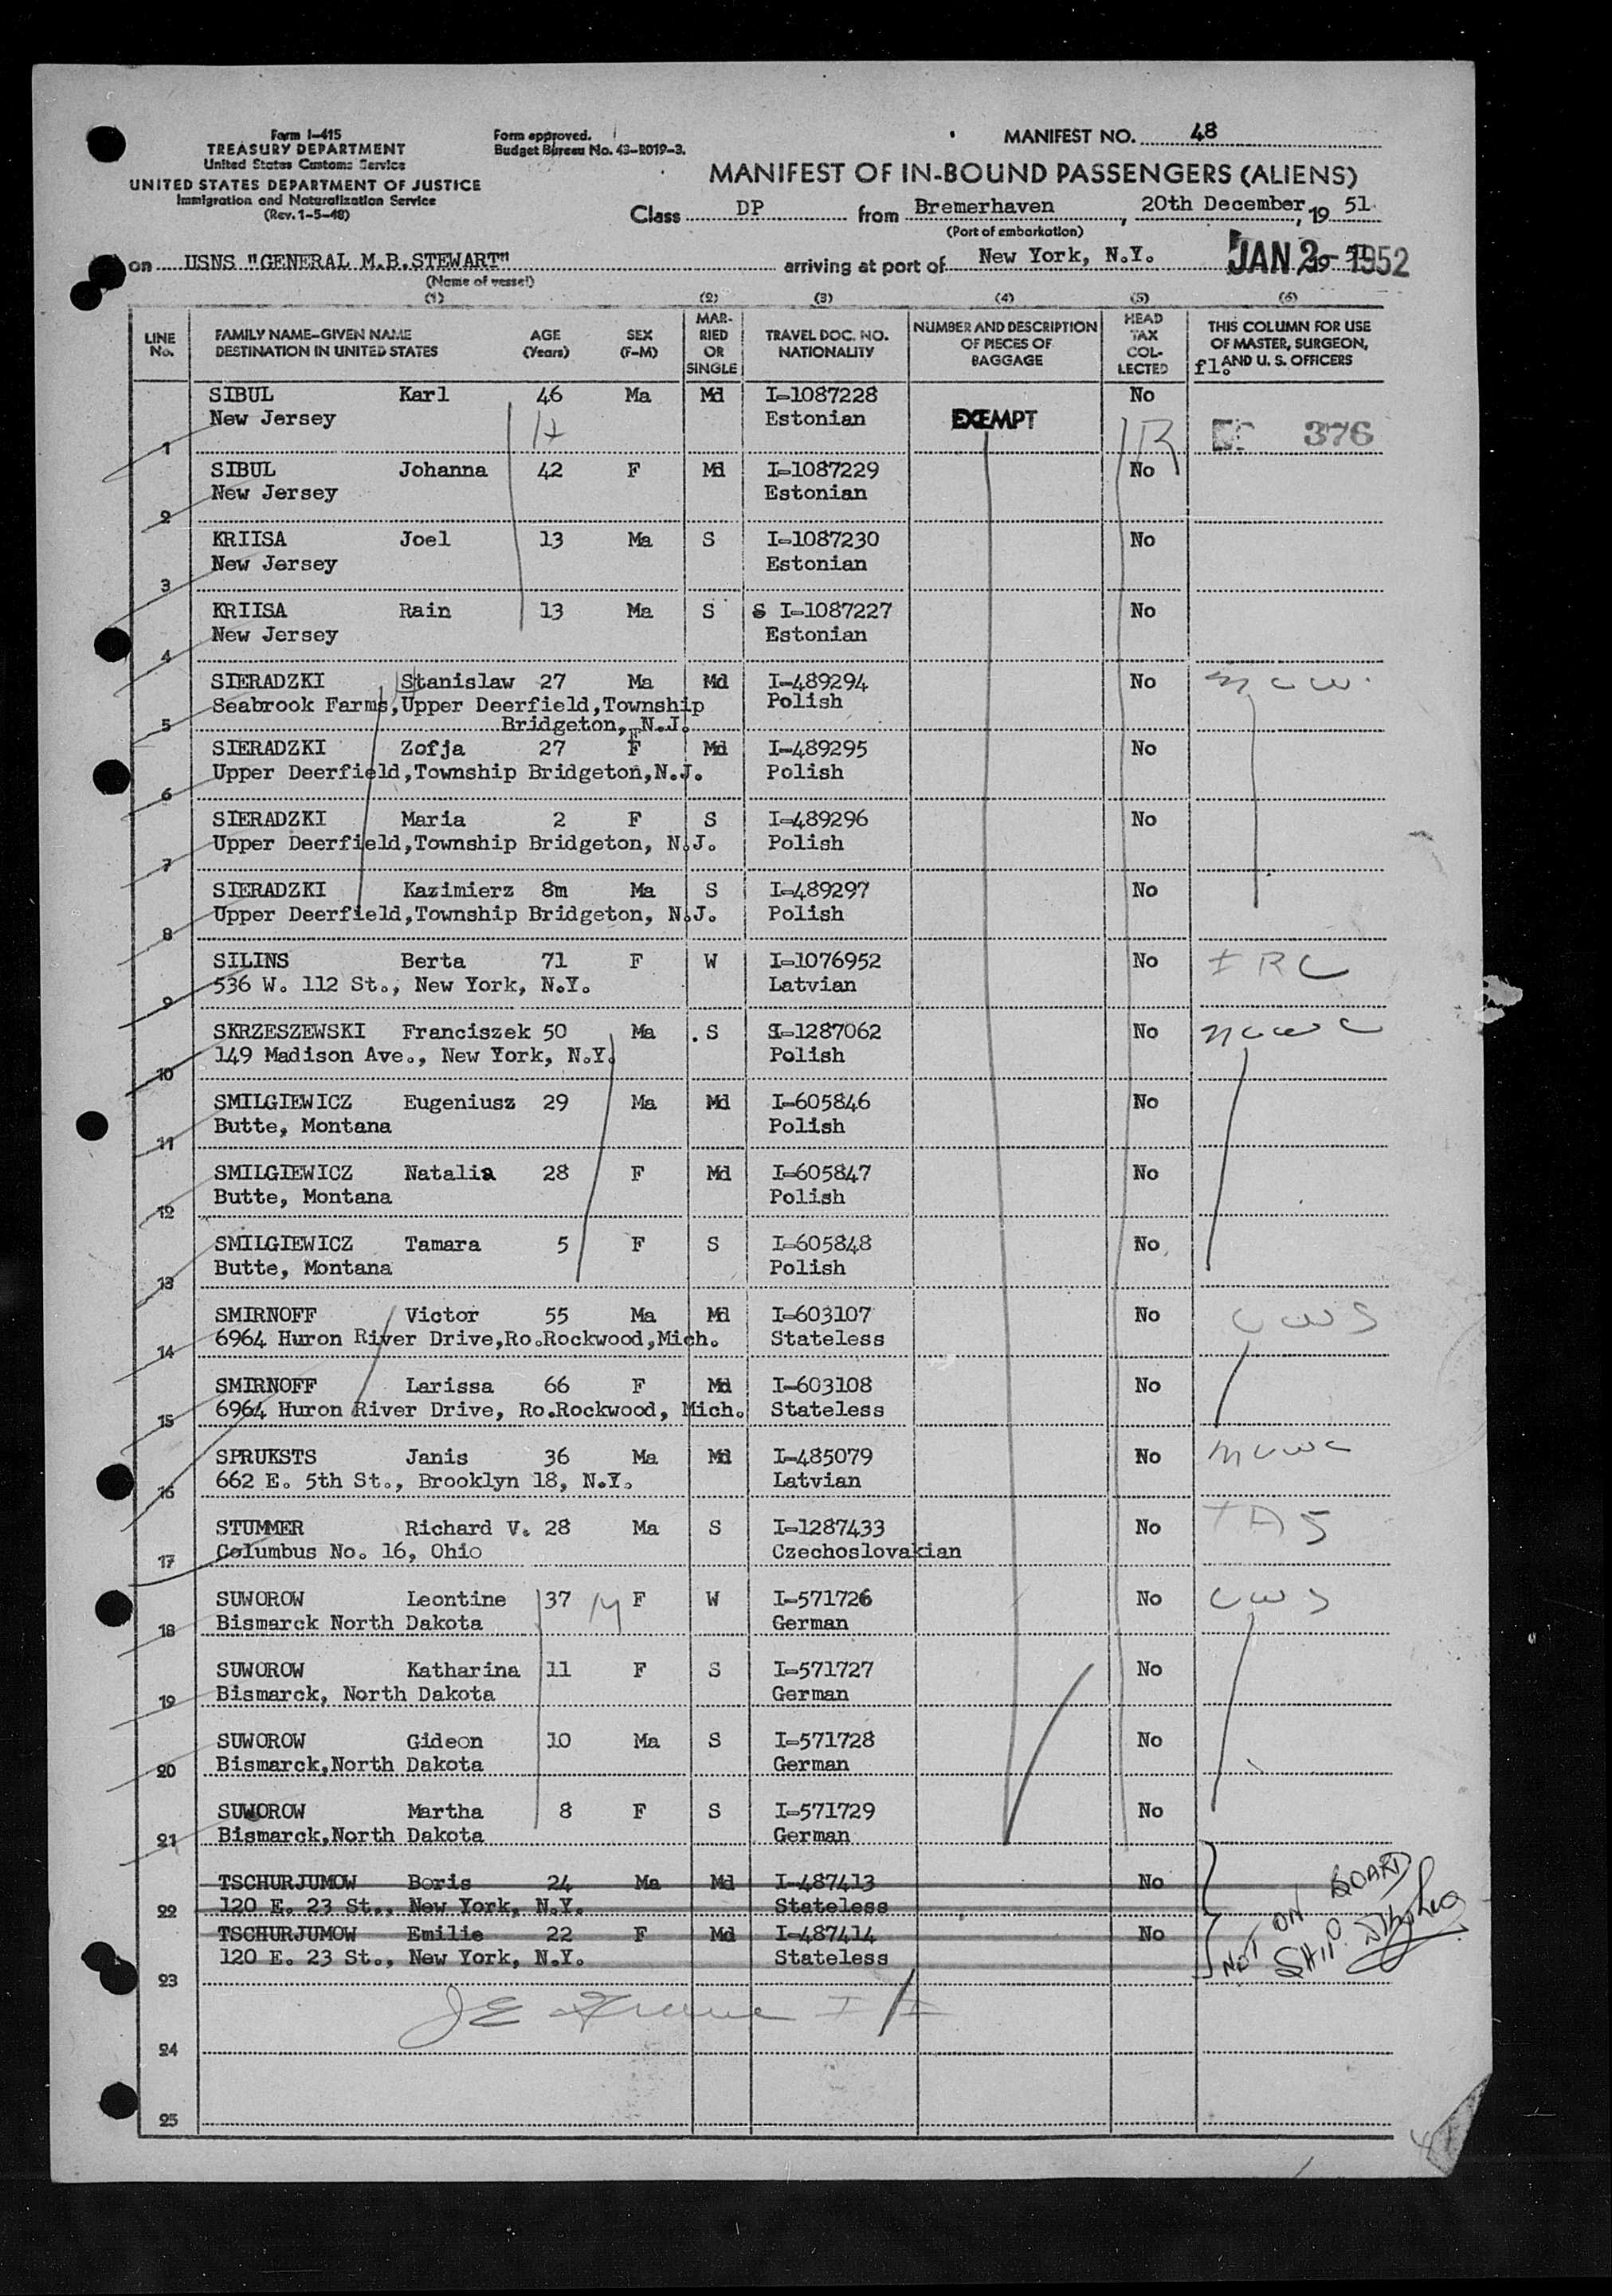 Form I-415
TREASURY DEPARTMENT
United States Customs Service
UNITED STATES DEPARTMENT OF JUSTICE
Immigration and Naturalization Service
(Rev. 1-5-48)
Form approved.
Budget Bureau No. 43-R019-3.
MANIFEST NO. 48
MANIFEST OF IN-BOUND PASSENGERS (ALIENS)
Class DP from Bremerhaven, 20th December, 19 51.
(Port of embarkation)
on USNS "GENERAL M.B.STEWART" arriving at port of New York, N.Y. JAN 2- 1952
(Name of vessel)
(1) (2) (3) (4) (5) (6)
LINE No. FAMILY NAME—GIVEN NAME DESTINATION IN UNITED STATES AGE (Years) SEX (F-M) MARRIED OR SINGLE TRAVEL DOC. NO. NATIONALITY NUMBER AND DESCRIPTION OF PIECES OF BAGGAGE HEAD TAX COLLECTED THIS COLUMN FOR USE OF MASTER, SURGEON, AND U. S. OFFICERS
fl.
SIBUL Karl 46 Ma Md I-1087228 No
1 New Jersey Estonian EXEMPT 376
SIBUL Johanna 42 F Md I-1087229 No
2 New Jersey Estonian
KRIISA Joel 13 Ma S I-1087230 No
3 New Jersey Estonian
KRIISA Rain 13 Ma S S I-1087227 No
4 New Jersey Estonian
SIERADZKI Stanislaw 27 Ma Md I-489294 No
5 Seabrook Farms,Upper Deerfield,Township Polish
Bridgeton, N.J.
SIERADZKI Zofja 27 F Md I-489295 No
6 Upper Deerfield,Township Bridgeton,N.J. Polish
SIERADZKI Maria 2 F S I-489296 No
7 Upper Deerfield,Township Bridgeton, N.J. Polish
SIERADZKI Kazimierz 8m Ma S I-489297 No
8 Upper Deerfield,Township Bridgeton, N.J. Polish
SILINS Berta 71 F W I-1076952 No IRC
9 536 W. 112 St., New York, N.Y. Latvian
SKRZESZEWSKI Franciszek 50 Ma . S I-1287062 No
10 149 Madison Ave., New York, N.Y. Polish
SMILGIEWICZ Eugeniusz 29 Ma Md I-605846 No
11 Butte, Montana Polish
SMILGIEWICZ Natalia 28 F Md I-605847 No
12 Butte, Montana Polish
SMILGIEWICZ Tamara 5 F S I-605848 No
13 Butte, Montana Polish
SMIRNOFF Victor 55 Ma Md I-603107 No CWS
14 6964 Huron River Drive,Ro.Rockwood,Mich. Stateless
SMIRNOFF Larissa 66 F Md I-603108 No
15 6964 Huron River Drive, Ro.Rockwood, Mich. Stateless
SPRUKSTS Janis 36 Ma Md I-485079 No
16 662 E. 5th St., Brooklyn 18, N.Y. Latvian
STUMMER Richard V. 28 Ma S I-1287433 No
17 Columbus No. 16, Ohio Czechoslovakian
SUWOROW Leontine 37 F W I-571726 No CWS
18 Bismarck North Dakota German
SUWOROW Katharina 11 F S I-571727 No
19 Bismarck, North Dakota German
SUWOROW Gideon 10 Ma S I-571728 No
20 Bismarck,North Dakota German
SUWOROW Martha 8 F S I-571729 No
21 Bismarck,North Dakota German
TSCHURJUMOW Boris 24 Ma Md I-487413 No
22 120 E. 23 St., New York, N.Y. Stateless
TSCHURJUMOW Emilie 22 F Md I-487414 No
23 120 E. 23 St., New York, N.Y. Stateless
NOT ON BOARD
SHIP.
24
25